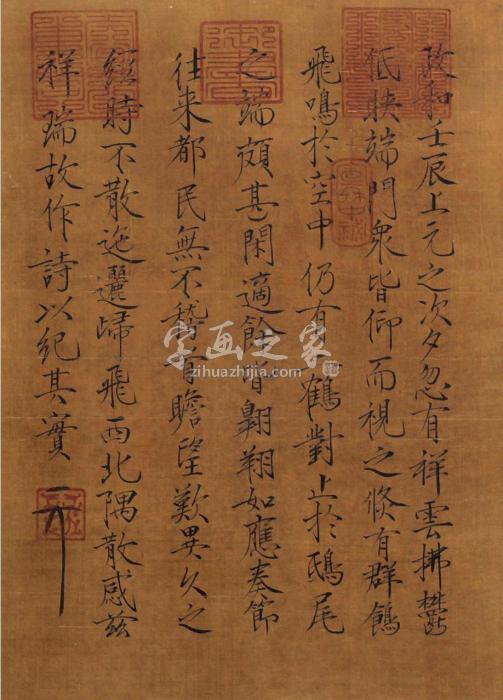 政和壬辰上元之次夕忽有祥雲拂鬱
低暎端門衆皆仰而視之倐有群鶴
飛鳴於空中仍有二鶴對止於鴟尾
之端頗甚閑適餘皆翱翔如應奏節
往来都民無不稽首瞻望歎異久之
經時不散迤邐歸飛西北隅散感兹
祥瑞故作詩以紀其實
字画之家
zihuazhijia.com